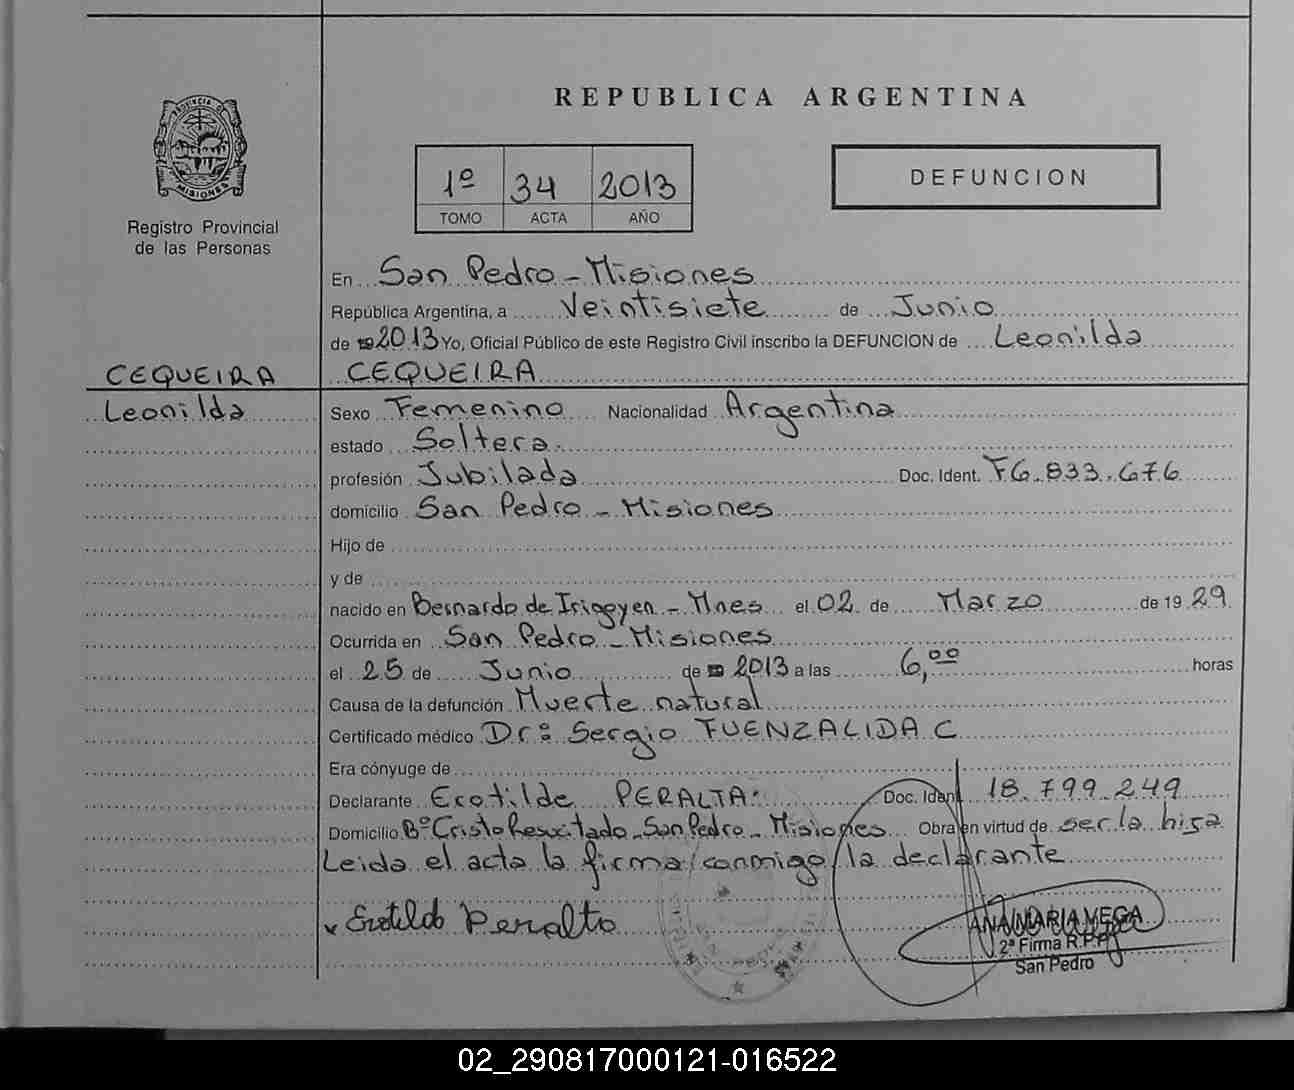 REPUBLICA ARGENTINA
PROVINCIA DE
MISIONES
Registro Provincial
de las Personas
1º 34 2013
TOMO ACTA AÑO
DEFUNCION
En San Pedro - Misiones
República Argentina, a Veintisiete de Junio
de 19 2013 Yo, Oficial Público de este Registro Civil inscribo la DEFUNCION de Leonilda
CEQUEIRA CEQUEIRA
Leonilda Sexo Femenino Nacionalidad Argentina
estado Soltera.
profesión Jubilada Doc. Ident. F6.833.676
domicilio San Pedro - Misiones
Hijo de
y de
nacido en Bernardo de Irigoyen - Mnes el 02 de Marzo de 19 29
Ocurrida en San Pedro - Misiones
el 25 de Junio de 19 2013 a las 6,00 horas
Causa de la defunción Muerte natural
Certificado médico Dr: Sergio FUENZALIDA C
Era cónyuge de
Declarante Ecotilde PERALTA: Doc. Ident. 18.799.249
Domicilio Bº Cristo Resucitado - San Pedro - Misiones Obra en virtud de ser la hija
Leida el acta la firma conmigo la declarante
x Erotilde Peralta
ANA MARIA VEGA
2ª Firma R.P.P.
San Pedro
02_290817000121-016522